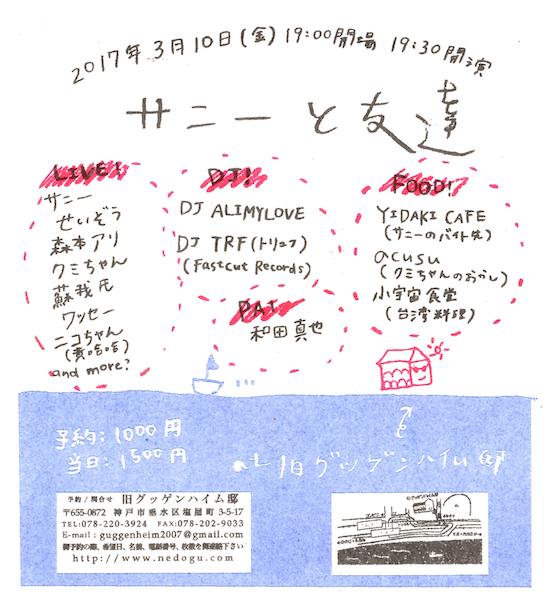 2017年3月10日(金)19:00開場 19:30開演
サニーと友達
LIVE!
サニー
せいぞう
森本アリ
クミちゃん
蘇我氏
ワッセー
ニコちゃん
and more?
DJ!
DJ ALIMYLOVE
DJ TRF(トリュフ)
(Fastcut Records)
PA!
和田真也
FOOD!
YIDAKI CAFE
(サニーのバイト先)
acusu
(クミちゃんのおかし)
小宇宙食堂
(台湾料理)
予約:1000円
当日:1500円
at 旧グッゲンハイム邸
予約/問合せ 旧グッゲンハイム邸
〒655-0872 神戸市垂水区塩屋町 3-5-17
TEL:078-220-3924 FAX:078-202-9033
E-mail:guggenheim2007@gmail.com
御予約の際、希望日、名前、電話番号、枚数を御連絡下さい
http://www.nedogu.com